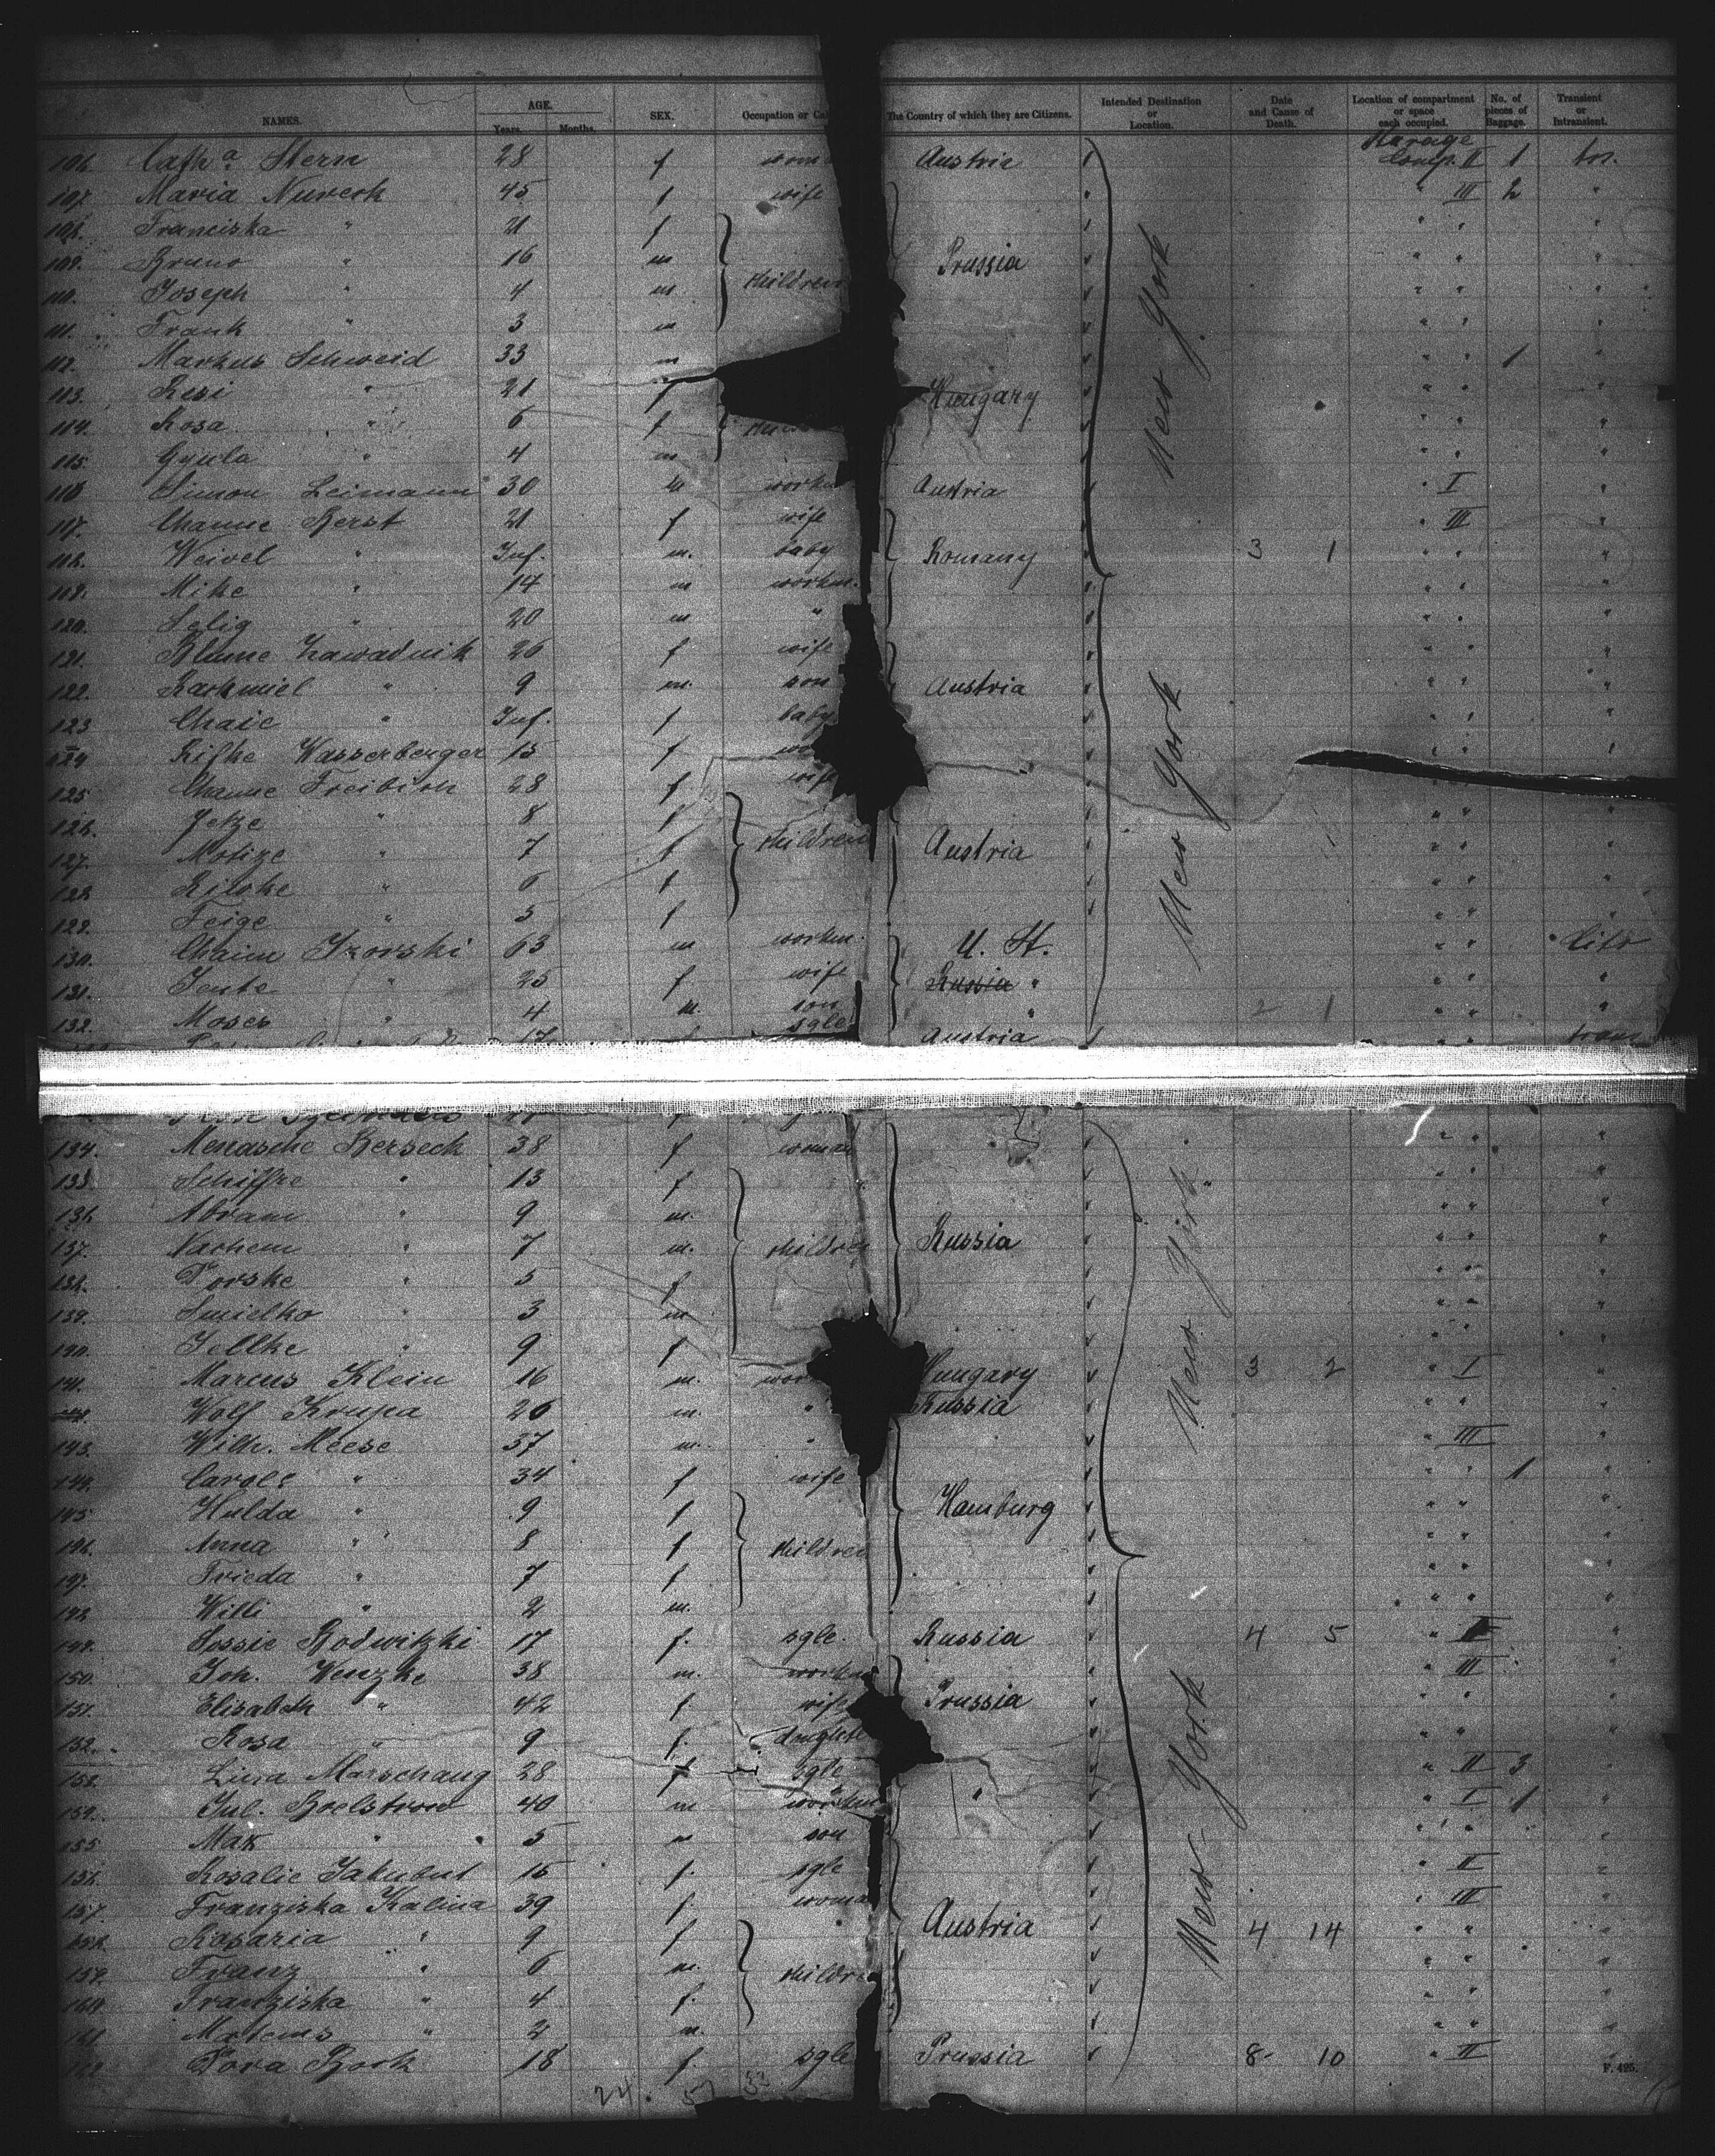 NAMES. AGE. Years. Months. SEX. Occupation or Ca The Country of which they are Citizens. Intended Destination or Location. Date and Cause of Death. Location of compartment or space each occupied. No. of pieces of Baggage. Transient or Intransient.
106. Cath.a Stern 28 f wom Austria Comp. II 1
107. Maria 45 f wife " III 2 "
108. Franciska " 21 f " " "
109. Bruno " 16 m Prussia " " "
110. Joseph " 4 m children " " "
111. Frank " 3 m " " "
112. Markus Schweid 33 m " " 1 "
113. Resi " 21 f Hungary " " "
114. Rosa " 6 f " " "
115. Gyula " 4 m " " "
116 Simon Leimann 30 m workm Austria " I "
117. Channe Berst 21 f wife " III "
118. Weivel " Inf. m. baby Romany 3 1 " " "
119. Mike " 14 m workm. " " "
120. Selig " 20 m " " " "
121. Blume Zawadnik 26 f wife " " "
122. Rachmiel " 9 m. son Austria " " "
123 Chaie " Inf. f baby " " "
124 Rifke Wasserberger 15 f " " "
125 Channe Freibich 28 f wife
126. Jetze " 8 f " " "
127. Motize " 7 f children Austria " " "
128. " 6 f " " "
129. Feige " 5 f " " "
130. Chaim Izorski 63 m workm. U. St. " " "
131. Jente " 25 f wife Russia " " " "
132. Moses " 4 m. son " 2 1 " " "
17 sgle Austria " "
New York
New York
134. Menasche Berseck 38 f woman " " "
135. Schiffre " 13 f " " "
136. Abram " 9 m. " " "
137. Nachem " 7 m. childre Russia " " "
138. " 5 f " " "
139. Smielko " 3 m " " "
140. Jellke " 9 f " " "
141. Marcus Klein 16 m. work Hungary 3 2 " I "
Wolf Krupa 26 m. " Russia " " "
143. Wilh. Meese 37 m. " " III "
144. Carole " 34 f wife " " 1 "
145 Hulda " 9 f Hamburg " " "
146. Anna " 8 f children " " "
147. Frieda " 7 f " " "
148 Willi " 2 m. " " "
149. Sossie Rodwitzki 17 f. sgle. Russia 4 5 " II "
150. Joh. Wenzke 38 m. workm " III "
151. Elisabeth " 42 f. wife Prussia " " "
152. Rosa " 9 f. " " "
153. Lina Marschang 28 f sgle " II 3 "
154. Jul. Boelstrow 40 m workm " " I 1 "
155 Max " 5 m son " " "
156. Rosalie Jakubut 15 f. sgle " II "
157. Franziska Kalina 39 f. woma " III "
158. Rosaria " 9 f Austria 4 14 " " "
159. Franz " 6 m. childre " " "
160 Franziska " 4 f. " " "
161. " 2 m. " " "
162 18 f sgle Prussia 8 10 " II "
New York
New York
F. 425.
24. 57 33